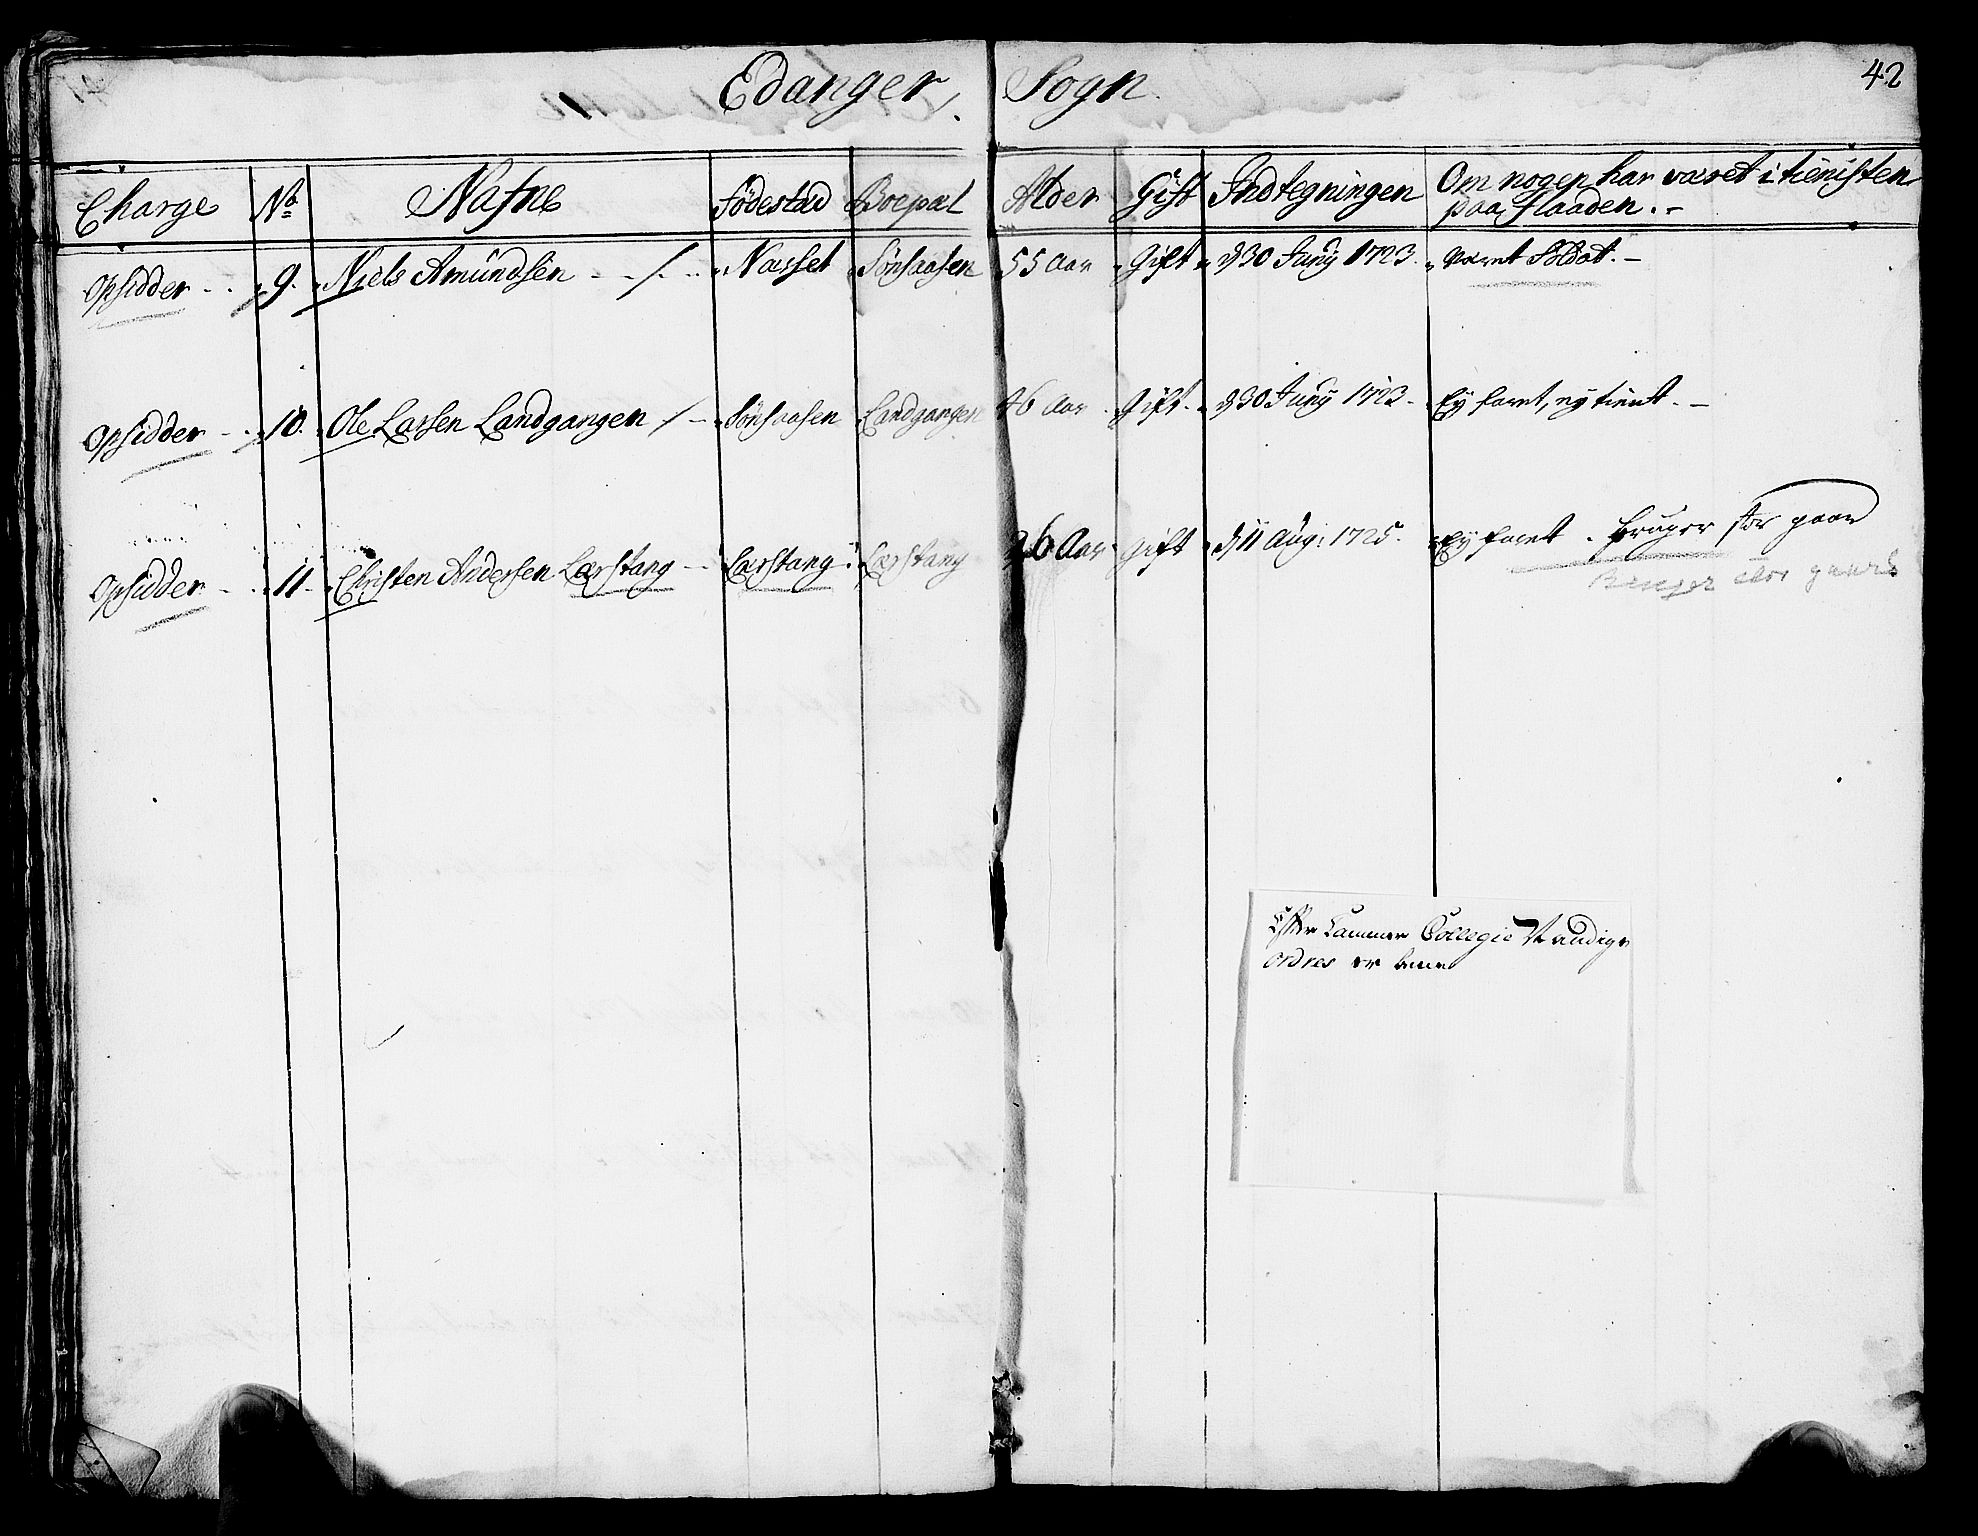 Edanger Sogn. 42
Charge No Nafne Födestæd Boepæl Alder Gift Indtegningen Om nogen har været i tienisten
paa Flaaden.-
Opsidder - . 9. Niels Amundsen - - / . Nasset Sönsaasen 55 Aar Gift d 30 Juny 1723. Været Soldat.-
Opsidder - . 10. Ole Larsen Landgangen / - Sönsaasen Landgangen 46 Aar Gift. d 30 Juny 1723. Ey faret, ey tient.-
Opsidder - . 11. Christen Andersen Lærstang - Lærstang Lærstang 26 Aar Gift d 11 Aug: 1725. Ey faret . bruger stor gaar
Bruger stor gaard
Efter Cammer Collegie
ordres er